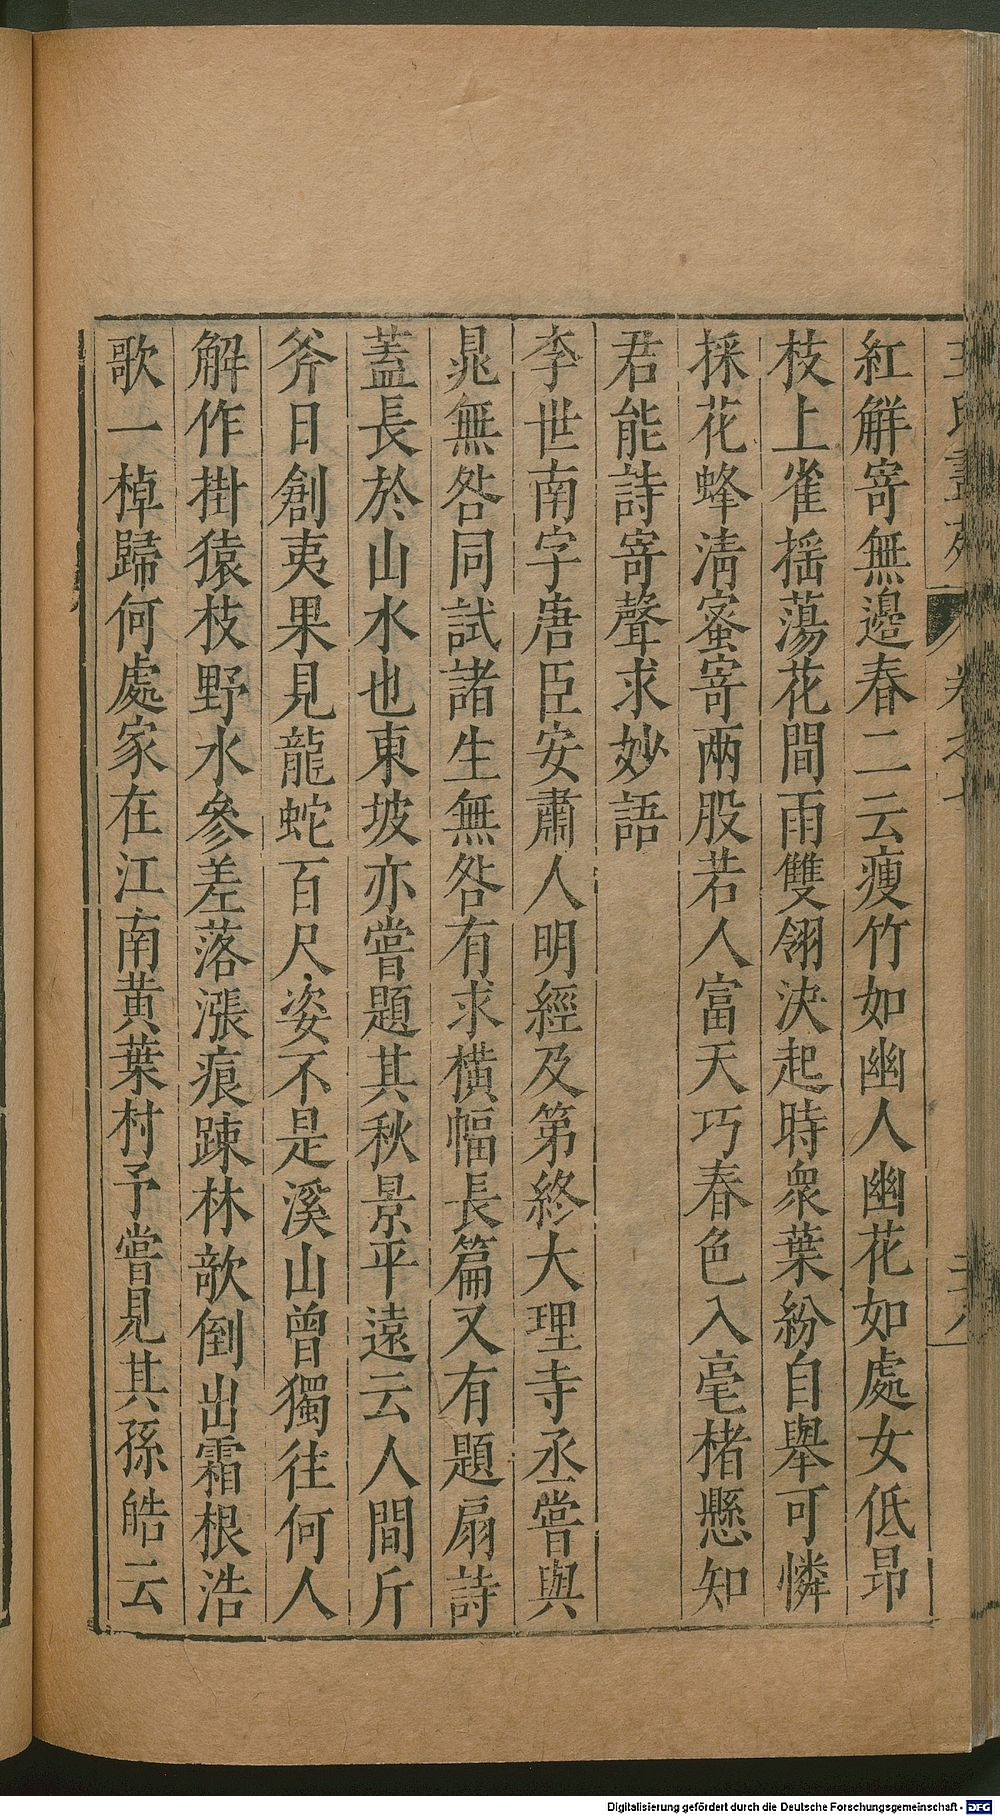 紅觧寄無邉春二云瘦竹如幽人幽花如處女低昻
枝上雀揺蕩花間雨雙翎決起時衆葉紛自舉可憐
採花蜂清蜜寄兩股若人富天巧春色入毫楮懸知
君能詩寄聲求妙語
李世南字唐臣安肅人明經及第終大理寺丞嘗與
晁無咎同試諸生無咎有求橫幅長篇又有題扇詩
蓋長於山水也東坡亦嘗題其秋景平遠云人間斤
斧日創夷果見龍蛇百尺姿不是溪山曾獨往何人
解作掛猿枝野水參差落漲痕踈林欹倒出霜根浩
歌一棹歸何處家在江南黄葉村予嘗見其孫皓云
卷之七
Digitalisierung gefördert durch die Deutsche Forschungsgemeinschaft - DFG